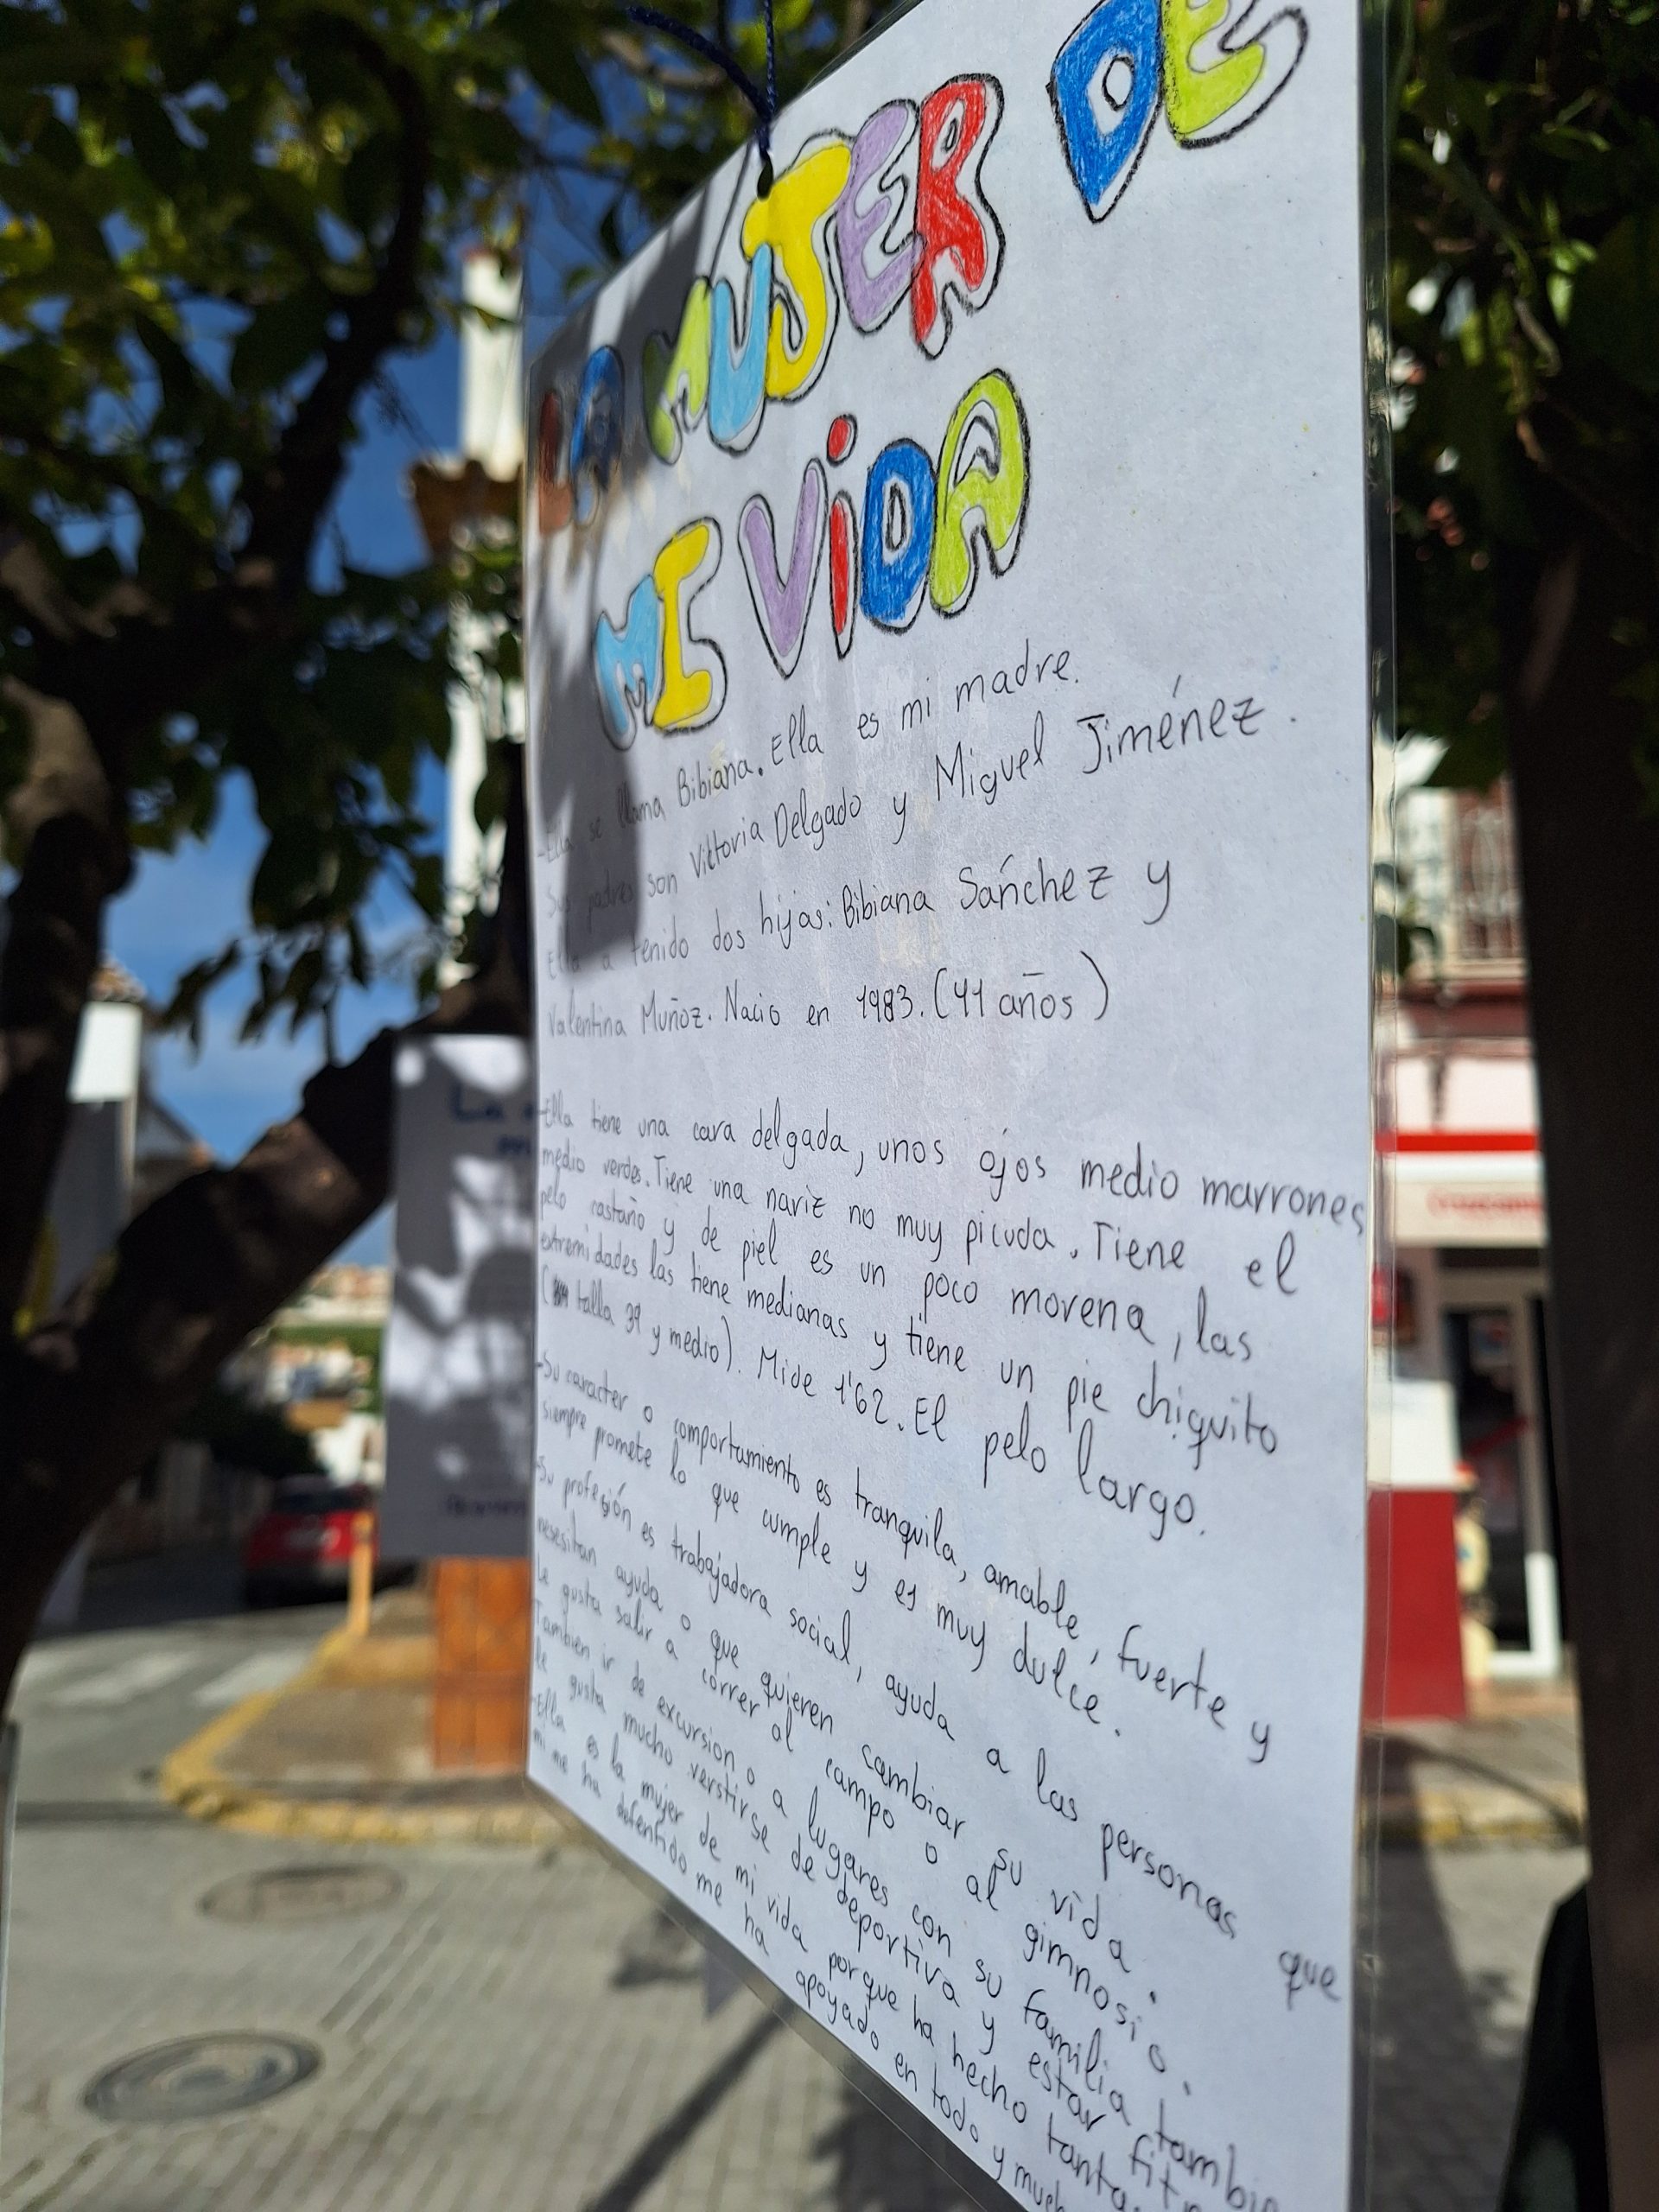 LA MUJER DE
MI ViDA
-Ella se llama Bibiana. Ella es mi madre.
Sus padres son Victoria Delgado y Miguel Jiménez.
Ella a tenido dos hijas: Bibiana Sánchez y
Valentina Muñoz. Nacio en 1983. (41 años)
-Ella tiene una cara delgada, unos ojos medio marrones
medio verdes. Tiene una nariz no muy picuda. Tiene el
pelo castaño y de piel es un poco morena, las
extremidades las tiene medianas y tiene un pie chiquito
(talla 39 y medio). Mide 1'62. El pelo largo.
-Su caracter o comportamiento es tranquila, amable, fuerte y
siempre promete lo que cumple y es muy dulce.
-Su profesión es trabajadora social, ayuda a las personas que
nesesitan ayuda o que quieren cambiar su vida.
Le gusta salir a correr al campo o al gimnosio.
Tambien ir de excursion o a lugares con su familia tambie
le gusta mucho verstirse de deportiva y estar fit
-Ella es la mujer de mi vida porque ha hecho tanta
mi me ha defenfido me ha apoyado en todo y much
La